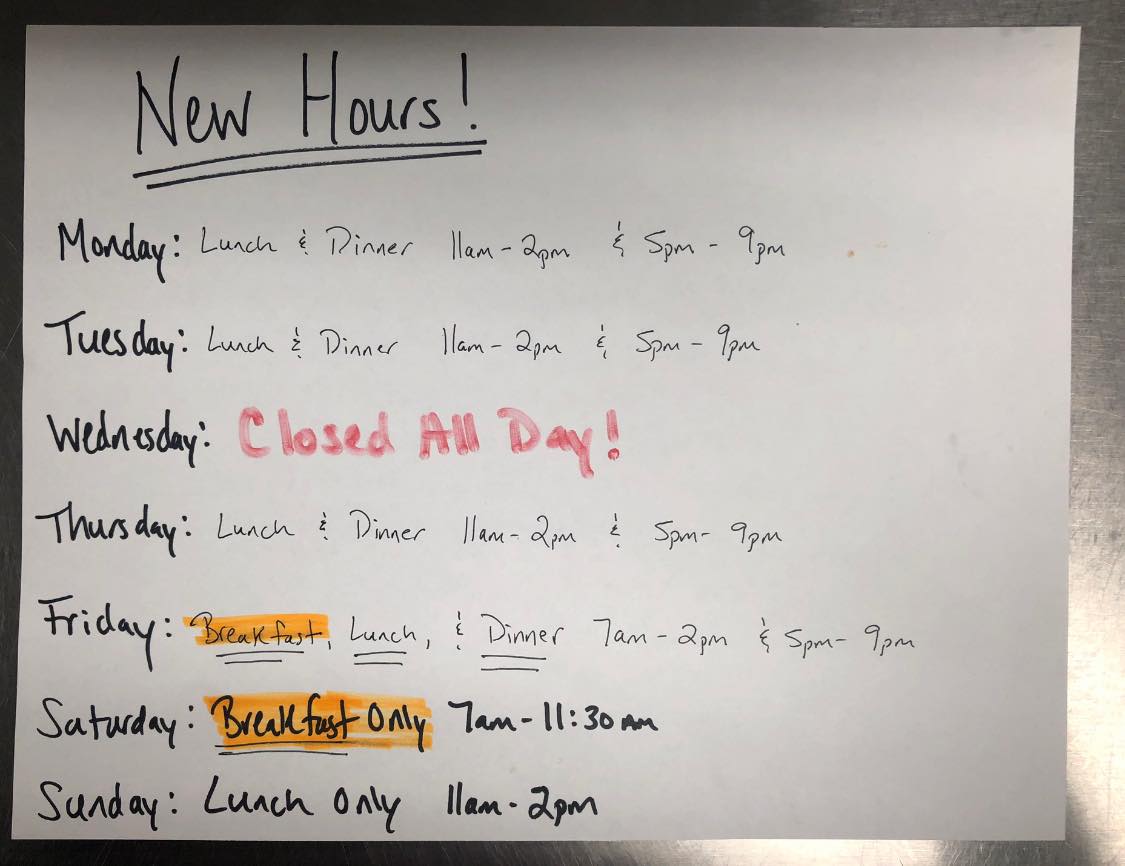 New Hours!
Monday: Lunch & Dinner 11am - 2pm & 5pm - 9pm
Tuesday: Lunch & Dinner 11am - 2pm & 5pm - 9pm
Wednesday: Closed All Day!
Thursday: Lunch & Dinner 11am - 2pm & 5pm - 9pm
Friday: Breakfast, Lunch, & Dinner 7am - 2pm & 5pm - 9pm
Saturday: Breakfast Only 7am - 11:30 AM
Sunday: Lunch Only 11am - 2pm